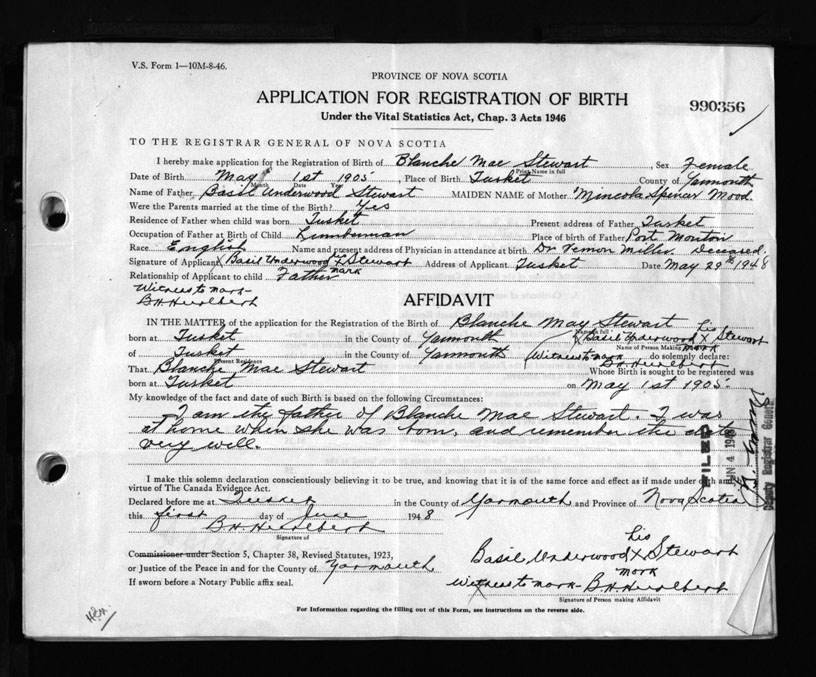 V.S. Form 1—10M-8-46.
PROVINCE OF NOVA SCOTIA
APPLICATION FOR REGISTRATION OF BIRTH
990356
Under the Vital Statistics Act, Chap. 3 Acts 1946
TO THE REGISTRAR GENERAL OF NOVA SCOTIA
I hereby make application for the Registration of Birth of Blanche Mae Stewart Sex Female
Print Name in full
Date of Birth May 1st 1905, Place of Birth Tusket County of Yarmouth
Month Date Year
Name of Father Basil Underwood Stewart MAIDEN NAME of Mother Mincola Spencer Mood
Were the Parents married at the time of the Birth? Yes
Residence of Father when child was born Tusket Present address of Father Tusket
Occupation of Father at Birth of Child Lumberman Place of birth of Father Port Mouton
Race English Name and present address of Physician in attendance at birth Dr. Vernon Miller. Deceased.
Signature of Applicant Basil Underwood X Stewart Address of Applicant Tusket Date May 29 1948
Relationship of Applicant to child Father mark
Witness to mark
B.H. Hurlbert
AFFIDAVIT
IN THE MATTER of the application for the Registration of Birth of Blanche May Stewart his
Name in full
born at Tusket in the County of Yarmouth Basil Underwood X Stewart
Name of Person Making mark
of Tusket in the County of Yarmouth Witness to mark do solemnly declare:
Present Residence B.H. Hurlbert
That Blanche Mae Stewart Whose Birth is sought to be registered was
born at Tusket on May 1st 1905.
My knowledge of the fact and date of such Birth is based on the following Circumstances:
I am the father of Blanche Mae Stewart. I was
at home when she was born, and remember the date
very well.
FILED
JUN 4 1948
Deputy Registrar General
I make this solemn declaration conscientiously believing it to be true, and knowing that it is of the same force and effect as if made under oath and
virtue of The Canada Evidence Act.
Declared before me at Tusket in the County of Yarmouth and Province of Nova Scotia
this first day of June 1948
B.H. Hurlbert
Signature of
his
Commissioner under Section 5, Chapter 38, Revised Statutes, 1923, Basil Underwood X Stewart
mark
or Justice of the Peace in and for the County of Yarmouth
If sworn before a Notary Public affix seal. Witness to mark - B.H. Hurlbert
Signature of Person making Affidavit
For Information regarding the filling out of this Form, see instructions on the reverse side.